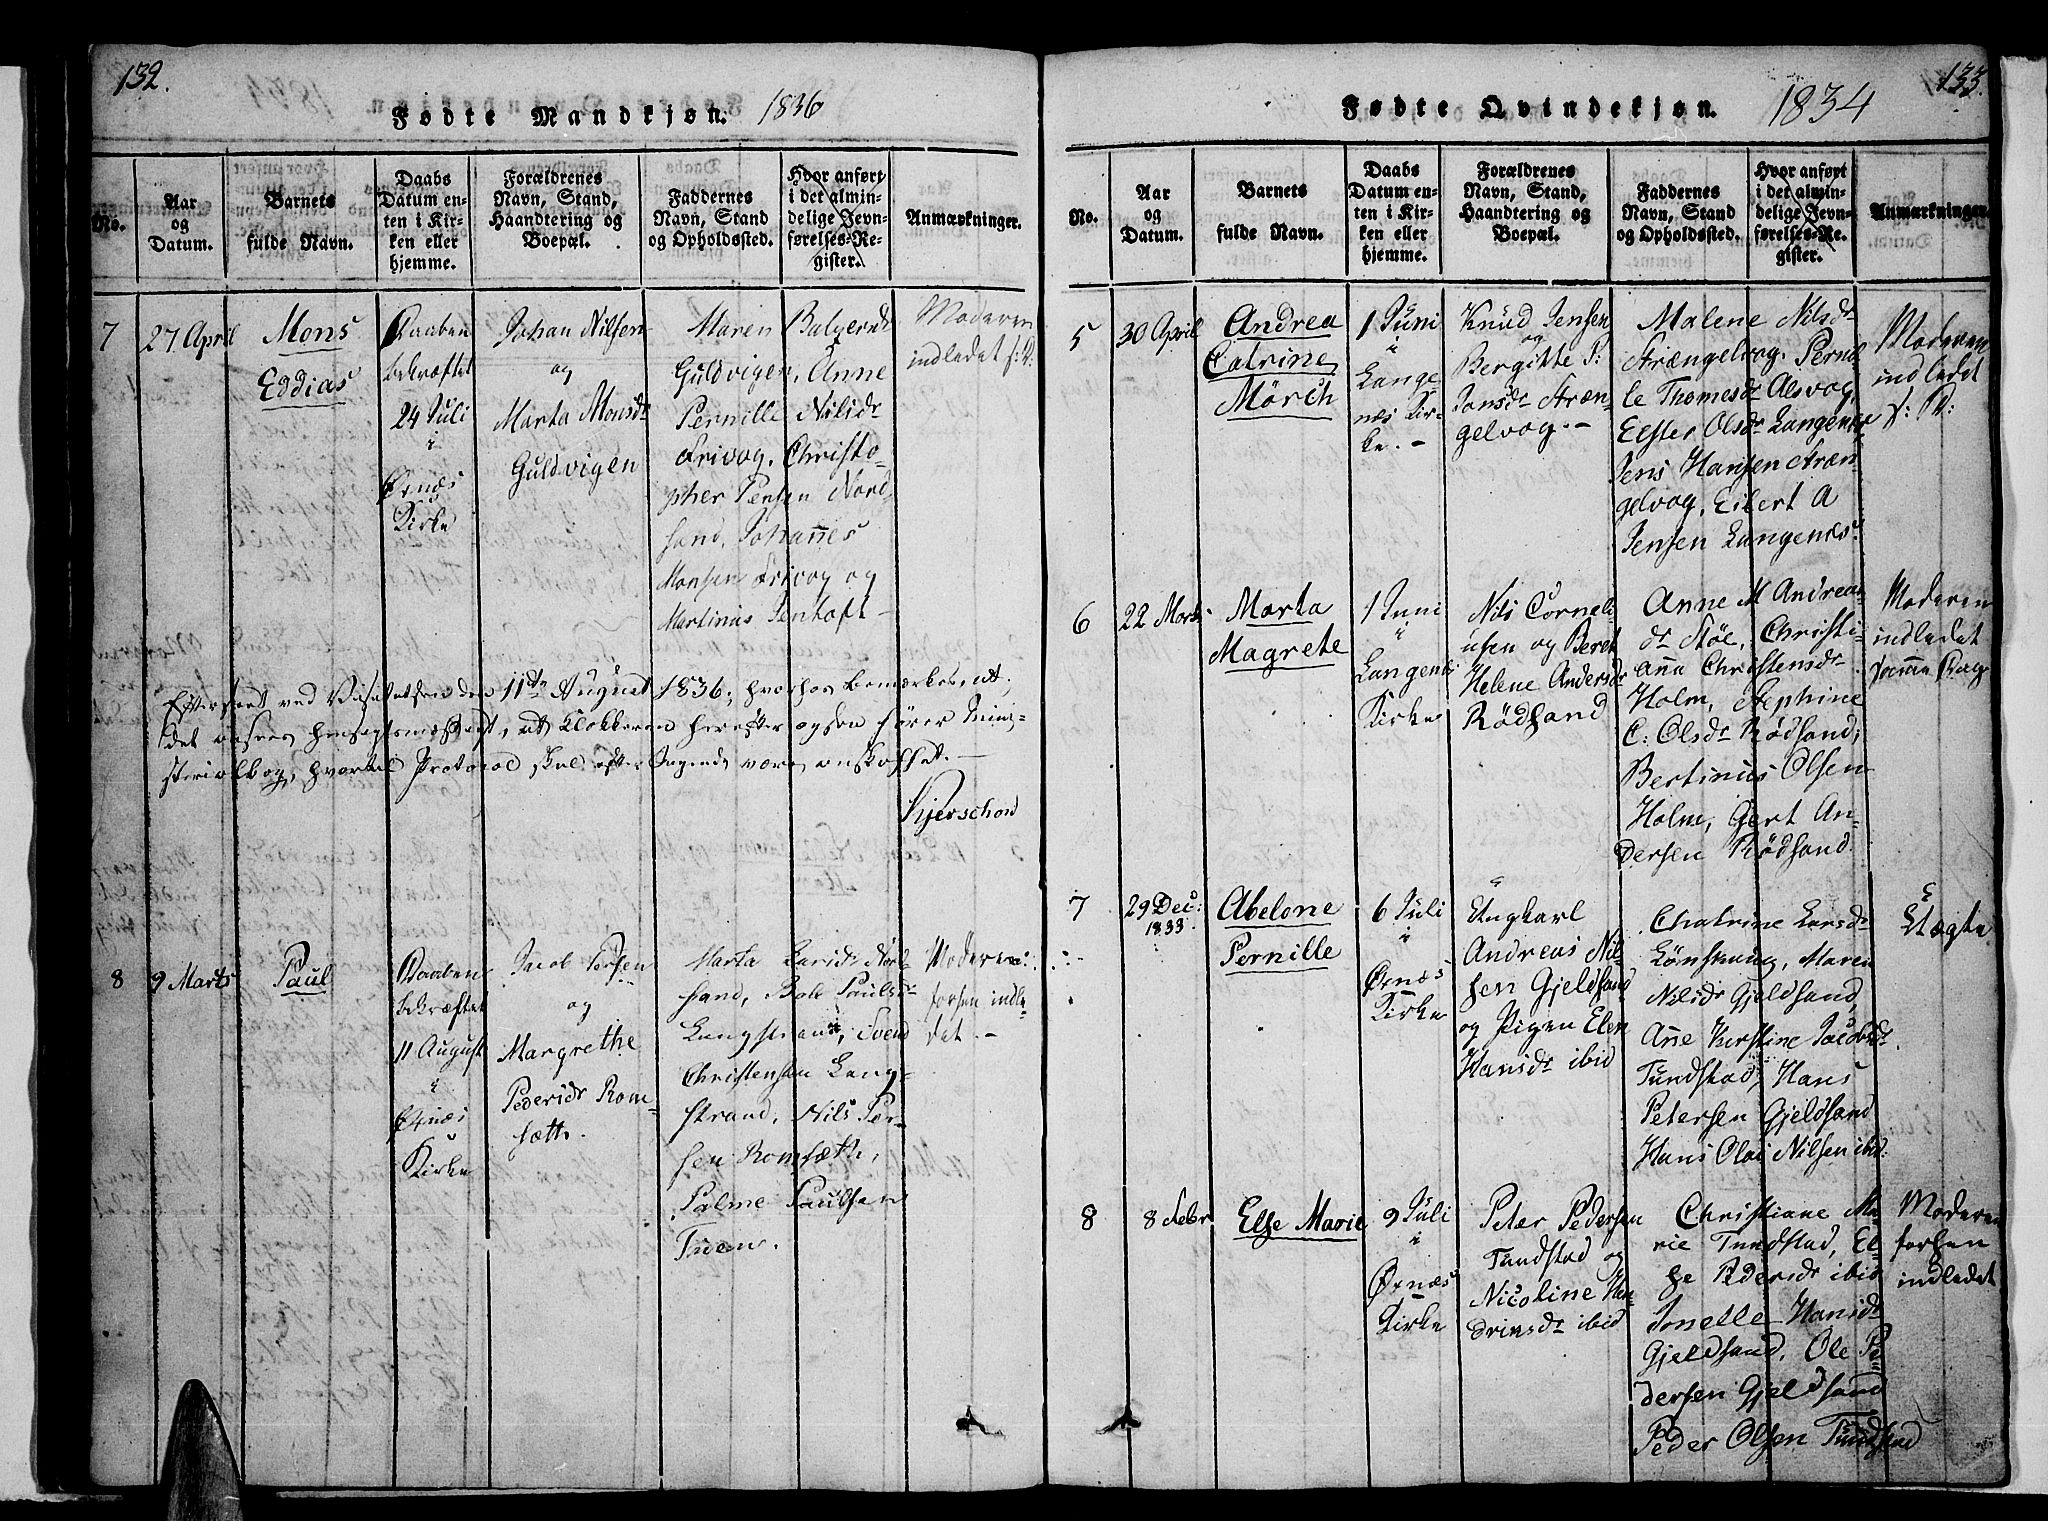 132.
Fødte Mandkjøn. 1836
No.
Aar
og
Datum.
Barnets
fulde Navn.
Daabs
Datum en-
ten i Kir-
ken eller
hjemme.
Forældrenes
Navn, Stand,
Haandtering og
Boepæl.
Faddernes
Navn, Stand
og Opholdssted.
Hvor anført
i det almin-
delige Jevn-
førelses-Re-
gister.
Anmærkninger.
7
27 April
Mons
Eddias
Daaben
bekræftet
24 Juli
i
Øxnæs
Kirke
Johan Nilsen
og
Marta Monsdr
Guldvigen
Maren
Guldvigen, Anne
Pernille Nilsdr
Frivog, Christo-
pher Jensen Nord
sand, Johannes
Monsen Frivog og
Martinus Jenhoft
Moderen
indledet f: D:
Efterseet ved Visitatsen den 11te August 1836, hvorhos bemærkes, at
det ansees hensigtsmæssigt, at Klokkeren herefter ogsaa fører Mini-
sterialbog, hvortil Protocol skal efter Sigende være anskaffet. —
Kjerschow
8
9 Marts
Paul
Daaben
bekræftet
11 August
i
Øxnæs
Kirke
Jacob Persen
og
Margrethe
Pedersdr Rom-
sæth.
Marta Larsdr Nord-
sand, Paulsdr
Langstrand, Svend
Christensen Lang-
strand, Nils Per-
sen Romsæth,
Palme Paulsen
Tuen.
Moderen
forhen indle-
det. —
133.
Fødte Qvindekjøn. 1834
No.
Aar
og
Datum.
Barnets
fulde Navn.
Daabs
Datum en-
ten i Kir-
ken eller
hjemme.
Forældrenes
Navn, Stand,
Haandtering og
Boepæl.
Faddernes
Navn, Stand
og Opholdssted.
Hvor anført
i det almin-
delige Jevn-
førelses-Re-
gister.
Anmærkninger.
5
30 April
Andrea
Catrine
Mörch
1 Juni
i
Lange-
næs Kir-
ke. —
Knud Jensen
og
Bergitte P:
Jonsdr Stræn-
gelvog. —
Malene Nilsdr
Strængelvog, Pernil
le Thomesdr Alsvog,
Elster Olsdr Langenes
Jens Hansen Stræn
gelvog, Eilert A
Jensen Langenes.
Moderen
indledet
f: D:
6
22 Marts
Marta
Magrete
1 Juni
i
Langenes
Kirke
Nils Corneli
usen og Beret
Helene Andersdr
Rødsand
Anne M Andreas
dr Støe, Christi-
ana Christensdr
Holm, Stephine
C: Olsdr Rødsand,
Bertinus Olsen
Holm, Gert An-
dersen Rødsand
Moderen
indledet
samme Dag
7
29 Dec:
1833
Abelone
Pernille
6 Juli
i
Øxnæs
Kirke
Ungkarl
Andreas Nil-
sen Gjeldsand
og Pigen Elen
Hansdr ibid
Chatrine Larsdr
Lønskaug, Maren
Nilsdr Gjeldsand,
Ane Kirstine Jacobsdr
Tundstad, Hans
Petersen Gjeldsand
Hans Olai Nilsen ibid.
Uægte
8
8 Febr
Else Marie
9 Juli
i
Øxnæs
Kirke
Peter Pedersen
Tundstad og
Nicoline Hen-
drinsdr ibid
Christiane Ma-
rie Tundstad, El-
se Pedersdr ibid
Jonette Hansdr
Gjeldsand, Ole Pe-
dersen Gjeldsand
Peder Olsen Tundstad
Moderen
forhen
indledet